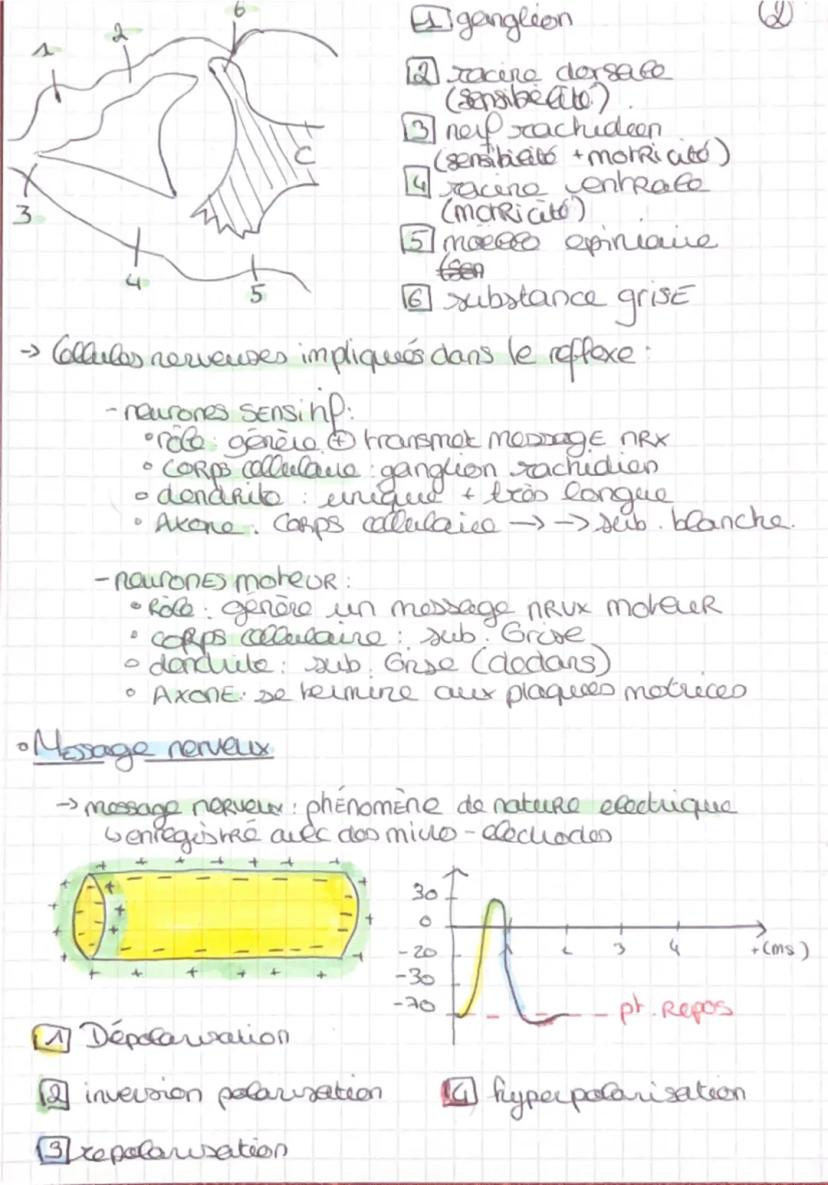 6
2
1
C
3
4
5
(2)
1 ganglion
2 racine dorsale
(sensibilité)
3 nerf rachidien
(sensibilité + motricité)
4 racine ventrale
(motricité)
5 moelle épinière
(sen
6 substance grise
→ Cellules nerveuses impliqués dans le réflexe :
- neurones sensitif :
• rôle : génère + transmet message nrx
• corps cellulaire : ganglion rachidien
• dendrite : unique + très longue
• Axone : corps cellulaire → → sub. blanche.
- neurones moteur :
• Rôle : génère un message nrvx moteur
• corps cellulaire : sub. Grise
• dendrite : sub. Grise (dedans)
• Axone : se termine aux plaques motrices
• Message nerveux
→ message nerveux : phénomène de nature electrique
↳ enregistré avec des micro-electrodes
30
0
-20
-30
-70
1 2 3 4 t(ms)
pt. Repos
1 Dépolarisation
2 inversion polarisation
4 hyperpolarisation
3 repolarisation